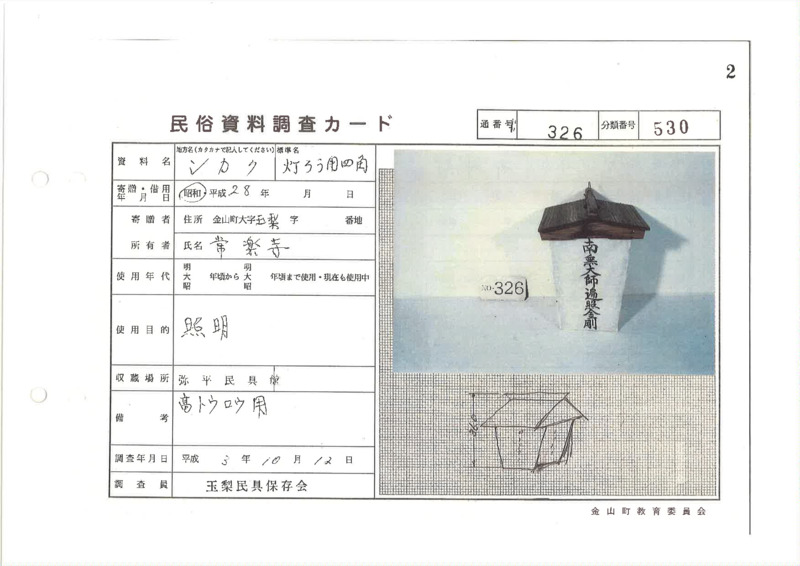 2
民俗資料調査カード
通番号 326 分類番号 530
資料名 地方名(カタカナで記入してください) シカク 標準名 灯ろう用四角
寄贈・借用年月日 昭和・平成 28 年 月 日
寄贈者 住所 金山町大字玉梨 字 番地
所有者 氏名 常楽寺
使用年代 明大昭 年頃から 明大昭 年頃まで使用・現在も使用中
使用目的 照明
収蔵場所 弥平民具館
備考 高トウロウ用
調査年月日 平成 3 年 10 月 12 日
調査員 玉梨民具保存会
南無大師遍照金剛
NO.326
金山町教育委員会